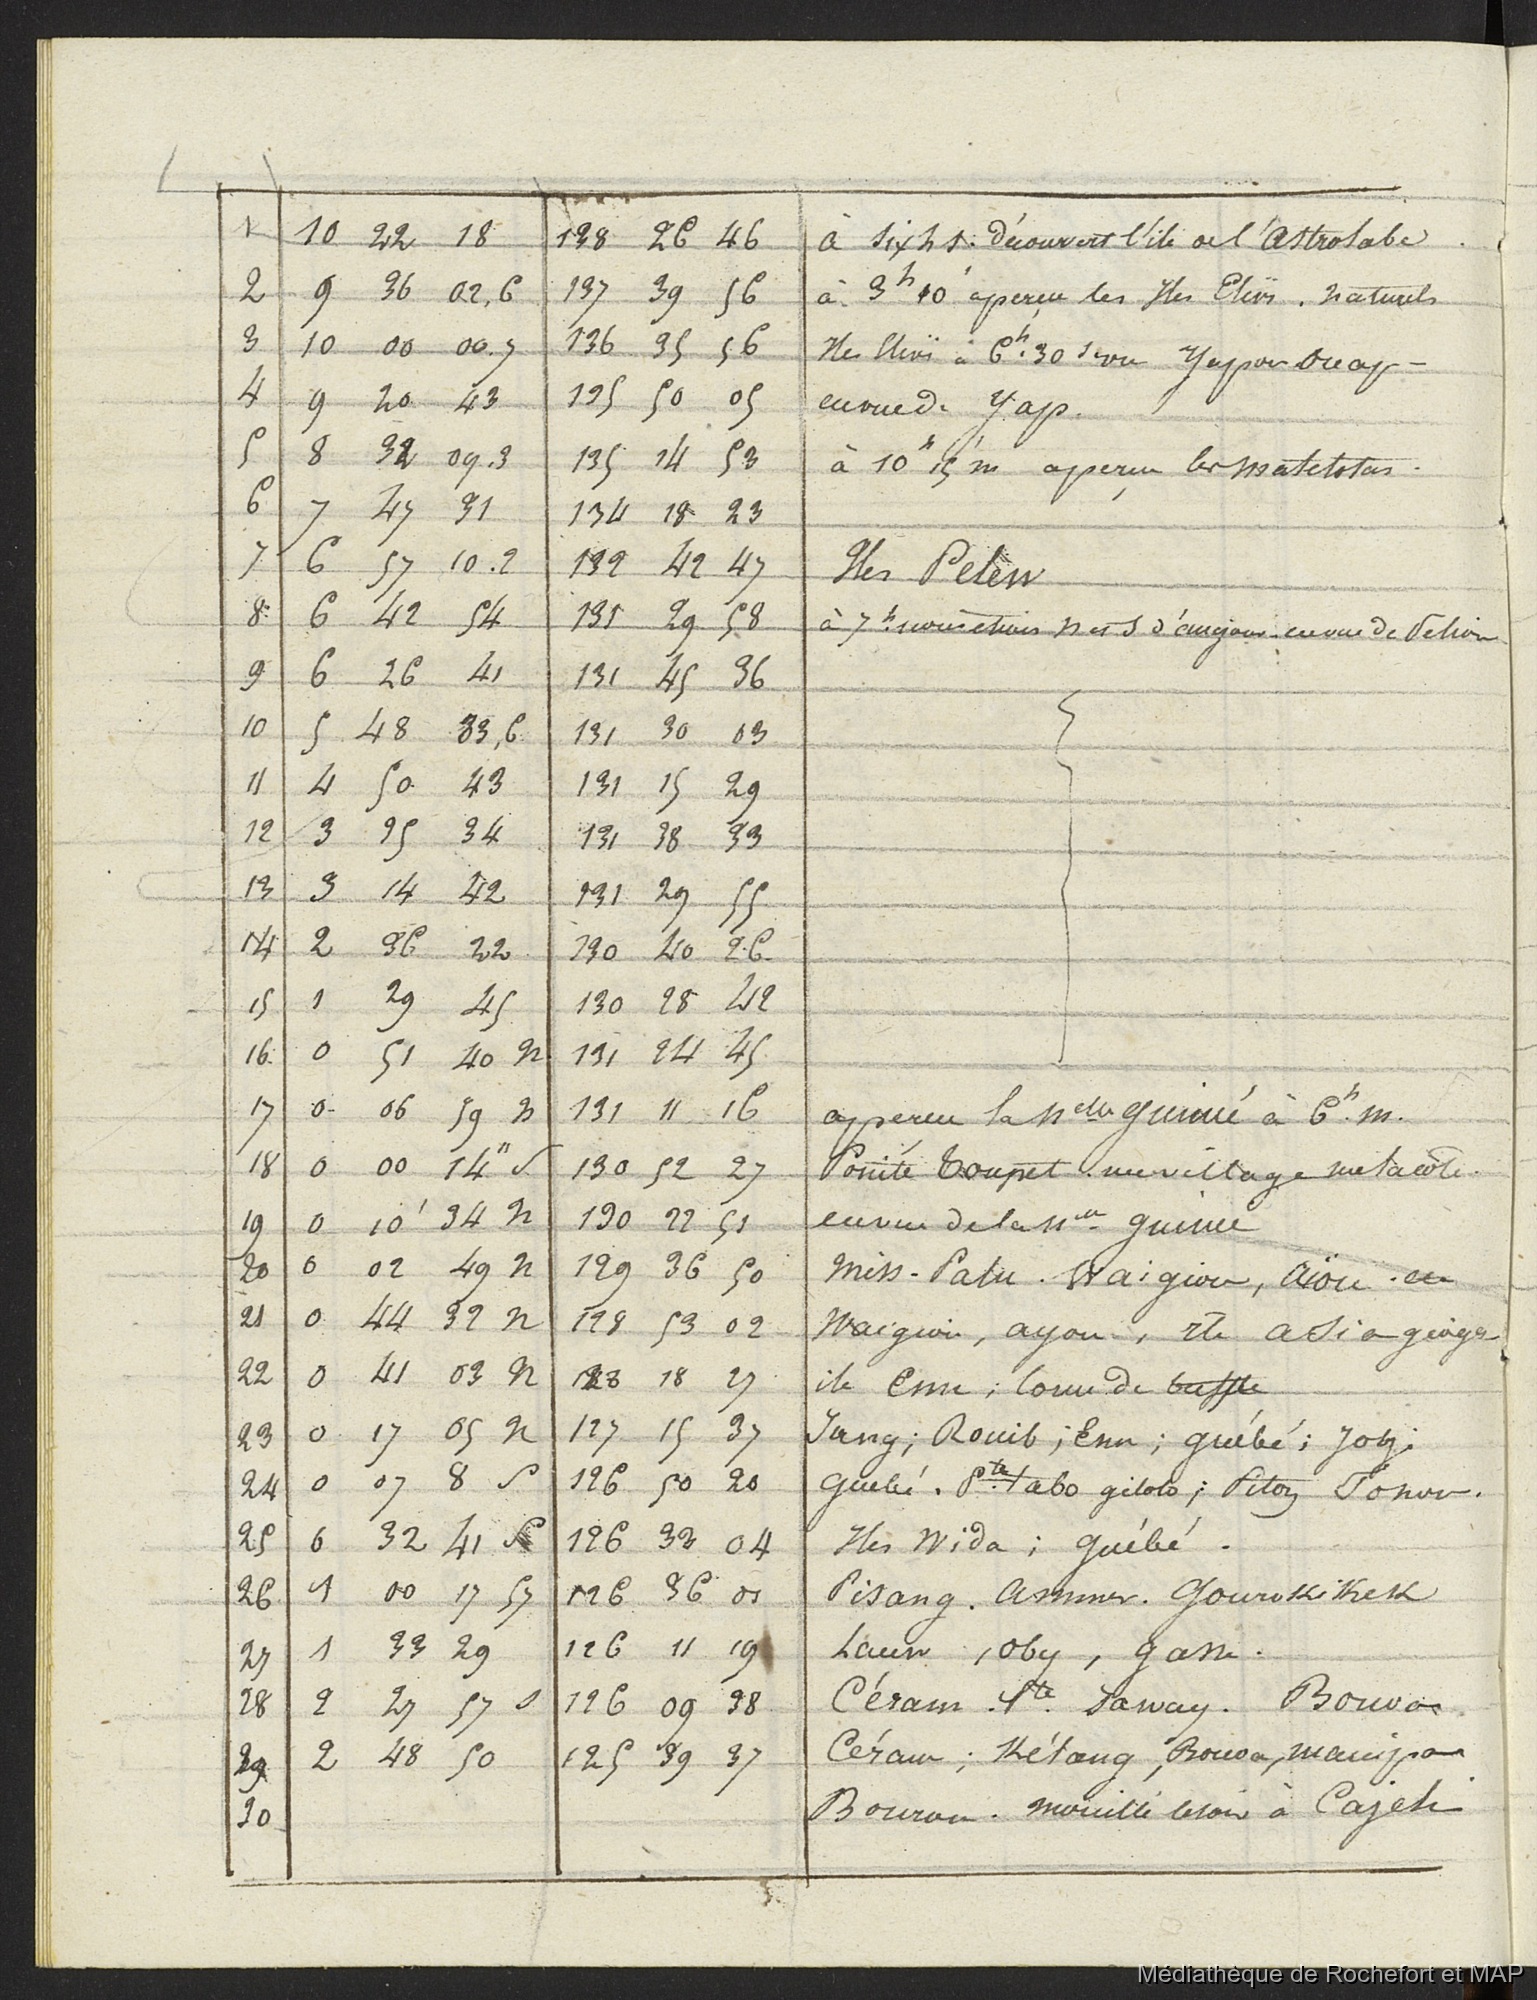 1 10 22 18 138 26 46 à six h s. découvert l'ile de l'Astrolabe.
2 9 36 02,6 137 39 56 à 3h 10' aperçu les Iles Elivi. naturels
3 10 00 00.7 136 35 56 Iles Elivi à 6h.30 s vu Yap ou Ouap
4 9 20 43 135 50 05 en vue de Yap.
5 8 32 09.3 135 14 53 à 10h 15' m aperçu les matelotas.
6 7 47 31 134 18 23
7 6 57 10.2 132 42 47 Iles Pelew
8 6 42 54 131 29 58 à 7h. nous étions N et S d'angour en vue de Peliou
9 6 26 41 131 45 36
10 5 48 33,6 131 30 03
11 4 50 43 131 15 29
12 3 35 34 131 38 33
13 3 14 42 131 29 55
14 2 36 22 130 40 26
15 1 29 45 130 28 42
16 0 51 40 N 131 24 45
17 0 06 59 N 131 11 16 apperçu la Nelle guinée à 6h. m.
18 0 00 14" S 130 52 27 vu village
19 0 10' 34 N 130 22 51 en vue de la Nlle guinée
20 0 02 49 N 129 36 50 Miss-Palu. Waigiou, Aïou. en
21 0 44 32 N 128 53 02 Waigiou, ayou, asia
22 0 41 03 N 128 18 27 ile Enn; de buffle
23 0 17 05 N 127 15 37 Jang; Rouib; Enn; guébé; Joy;
24 0 07 8 S 126 50 20 guebé. Pte tabo gilolo;
25 0 32 41 S 126 33 04 Iles Wida; guébé.
26 1 00 17 57 126 36 01 Pisang. Gourokikek
27 1 33 29 126 11 19 Lauw, oby, gass.
28 2 27 57 S 126 09 38 Céram. Pte. Saway. Bonoa
29 2 48 50 125 39 37 Céram; Kélang, Bonoa, manipa
30 Bourou. mouillé le soir à Cajeli
Médiathèque de Rochefort et MAP